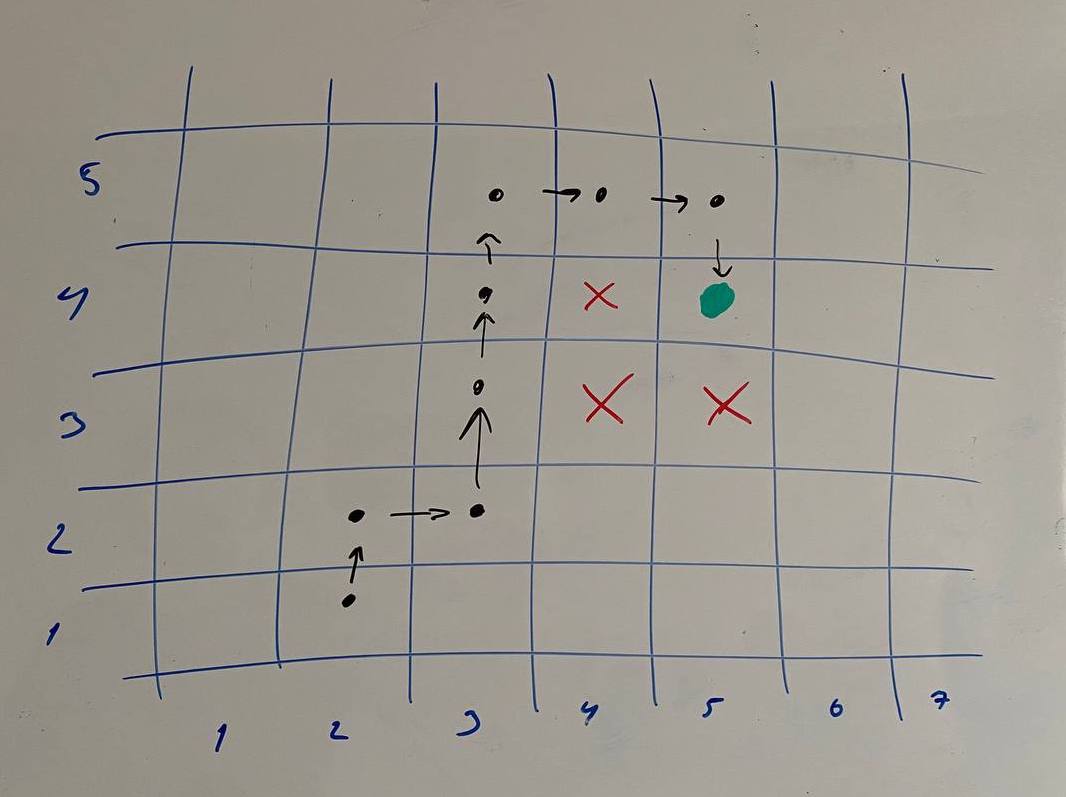 5
4
3
2
1
1 2 3 4 5 6 7